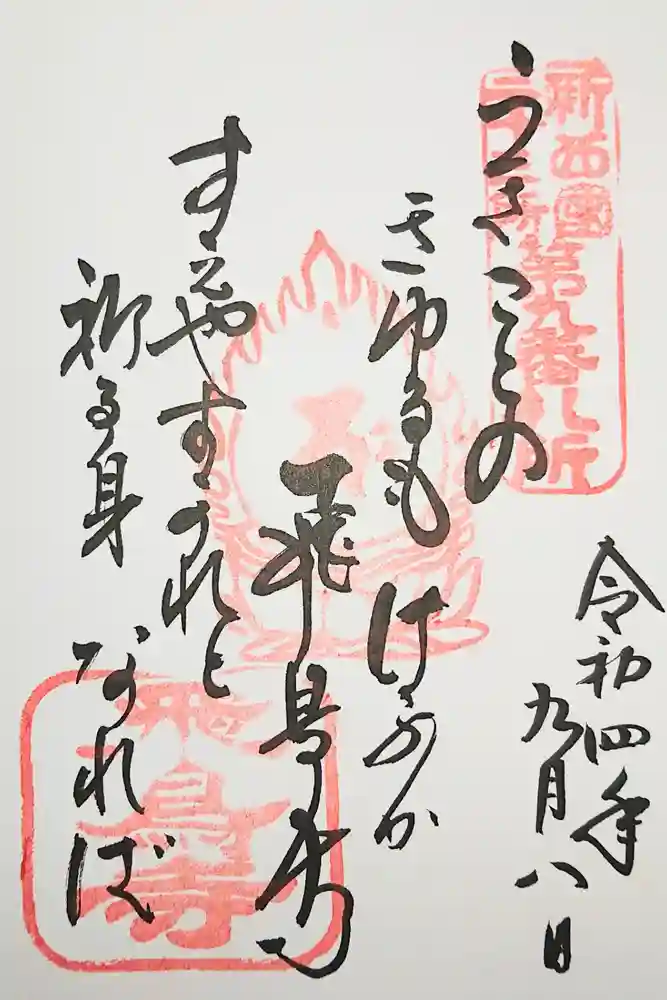 新西國
三十三所
第九番札所
うきことの
きゆるも けふか
飛鳥寺
すゑやすかれと
祈る身 なれば
令和四年
九月八日
飛鳥寺